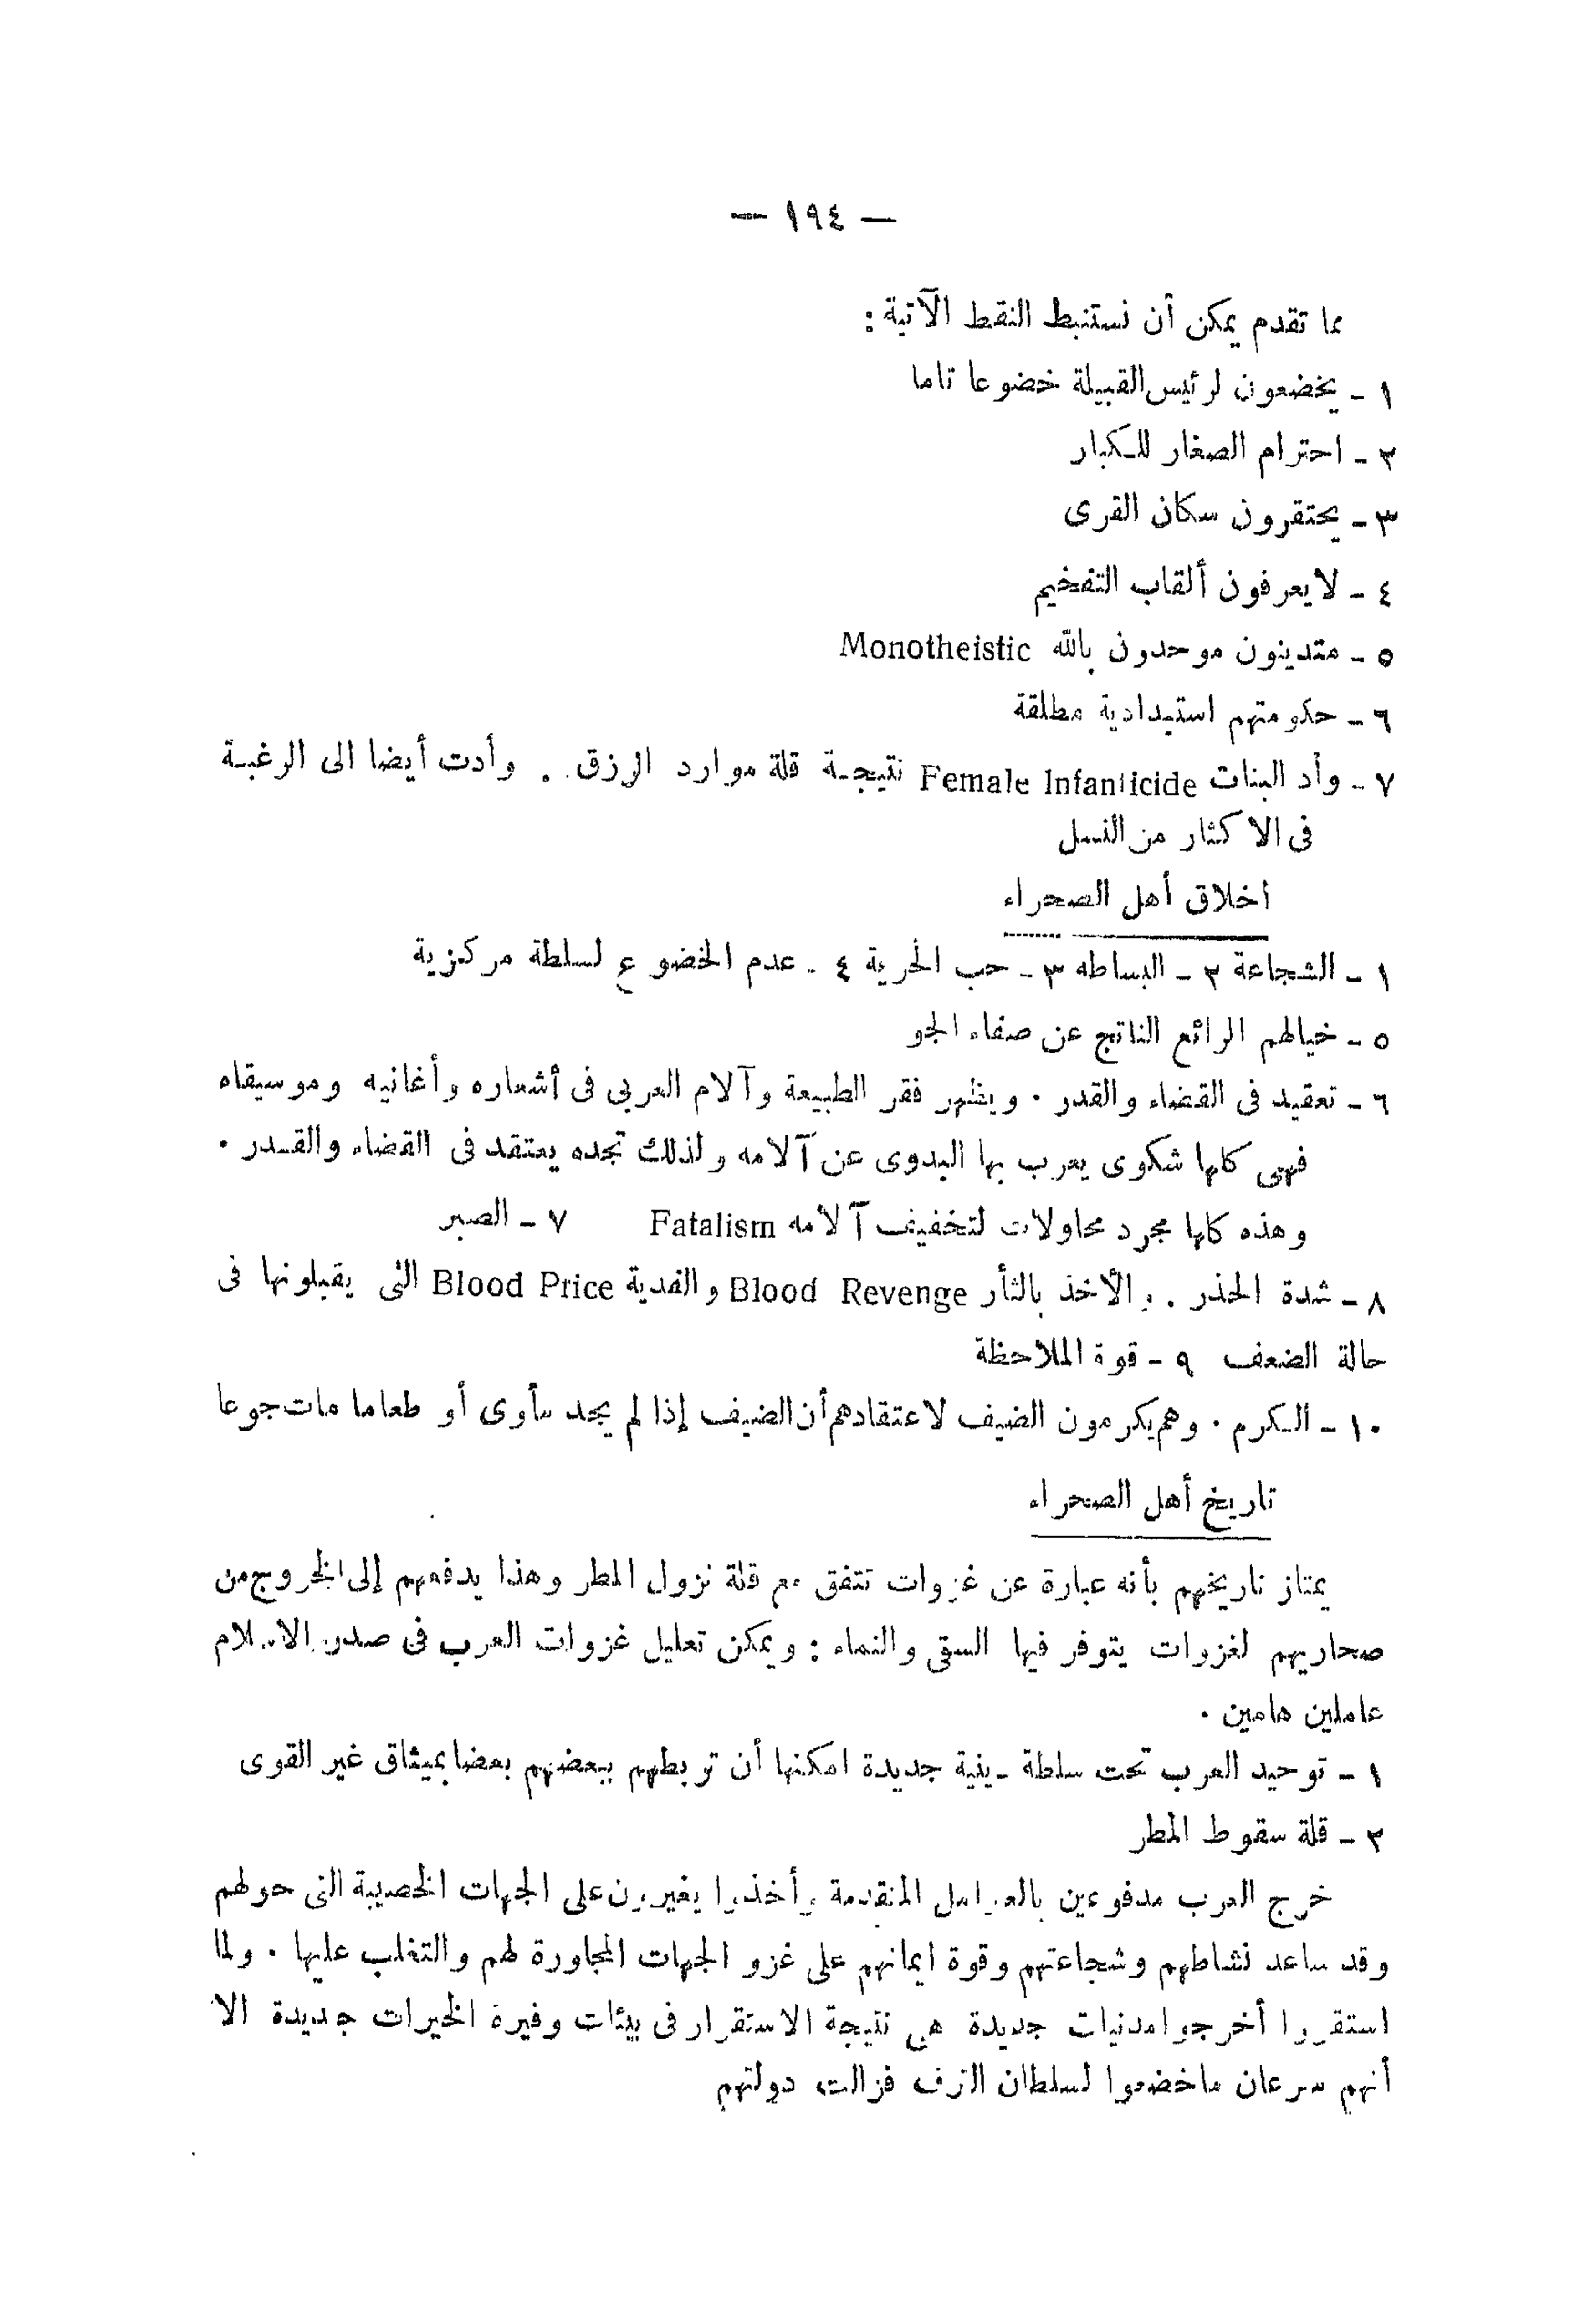 — ١٩٤ —
مما تقدم يمكن أن نستنبط النقط الآتية :
١ - يخضعون لرئيس القبيلة خضوعا تاما
٢ - احترام الصغار للكبار
٣ - يحتقرون سكان القرى
٤ - لا يعرفون ألقاب التفخيم
٥ - متدينون موحدون بالله Monotheistic
٦ - حكومتهم استبدادية مطلقة
٧ - وأد البنات Female Infanticide نتيجة قلة موارد الرزق . وأدت أيضا الى الرغبة
فى الاكثار من النسل
أخلاق أهل الصحراء
١ - الشجاعة ٢ - البساطه ٣ - حب الحرية ٤ - عدم الخضوع لسلطة مركزية
٥ - خيالهم الرائع الناتج عن صفاء الجو
٦ - تعقيد فى القضاء والقدر . ويظهر فقر الطبيعة وآلام العربى فى أشعاره وأغانيه وموسيقاه
فهى كلها شكوى يعرب بها البدوى عن آلامه ولذلك تجده يعتقد فى القضاء والقدر .
وهذه كلها مجرد محاولات لتخفيف آلامه Fatalism ٧ - الصبر
٨ - شدة الحذر . والأخذ بالثأر Blood Revenge والفدية Blood Price التى يقبلونها فى
حالة الضعف ٩ - قوة الملاحظة
١٠ - الكرم . وهم يكرمون الضيف لاعتقادهم أن الضيف إذا لم يجد مأوى أو طعاما مات جوعا
تاريخ أهل الصحراء
يمتاز تاريخهم بأنه عبارة عن غزوات تتفق مع قلة نزول المطر وهذا يدفعهم إلى الخروج من
صحاريهم لغزوات يتوفر فيها السقى والنماء : ويمكن تعليل غزوات العرب فى صدر الاسلام
عاملين هامين .
١ - توحيد العرب تحت سلطة دينية جديدة امكنها أن تربطهم ببعضهم بعضا بميثاق غير القوى
٢ - قلة سقوط المطر
خرج العرب مدفوعين بالعوامل المتقدمة وأخذوا يغيرون على الجهات الخصيبة التى حولهم
وقد ساعد نشاطهم وشجاعتهم وقوة ايمانهم على غزو الجهات المجاورة لهم والتغلب عليها . ولما
استقروا أخرجوا مدنيات جديدة هى نتيجة الاستقرار فى بيئات وفيرة الخيرات جديدة الا
أنهم سرعان ماخضعوا لسلطان الترف فزالت دولتهم